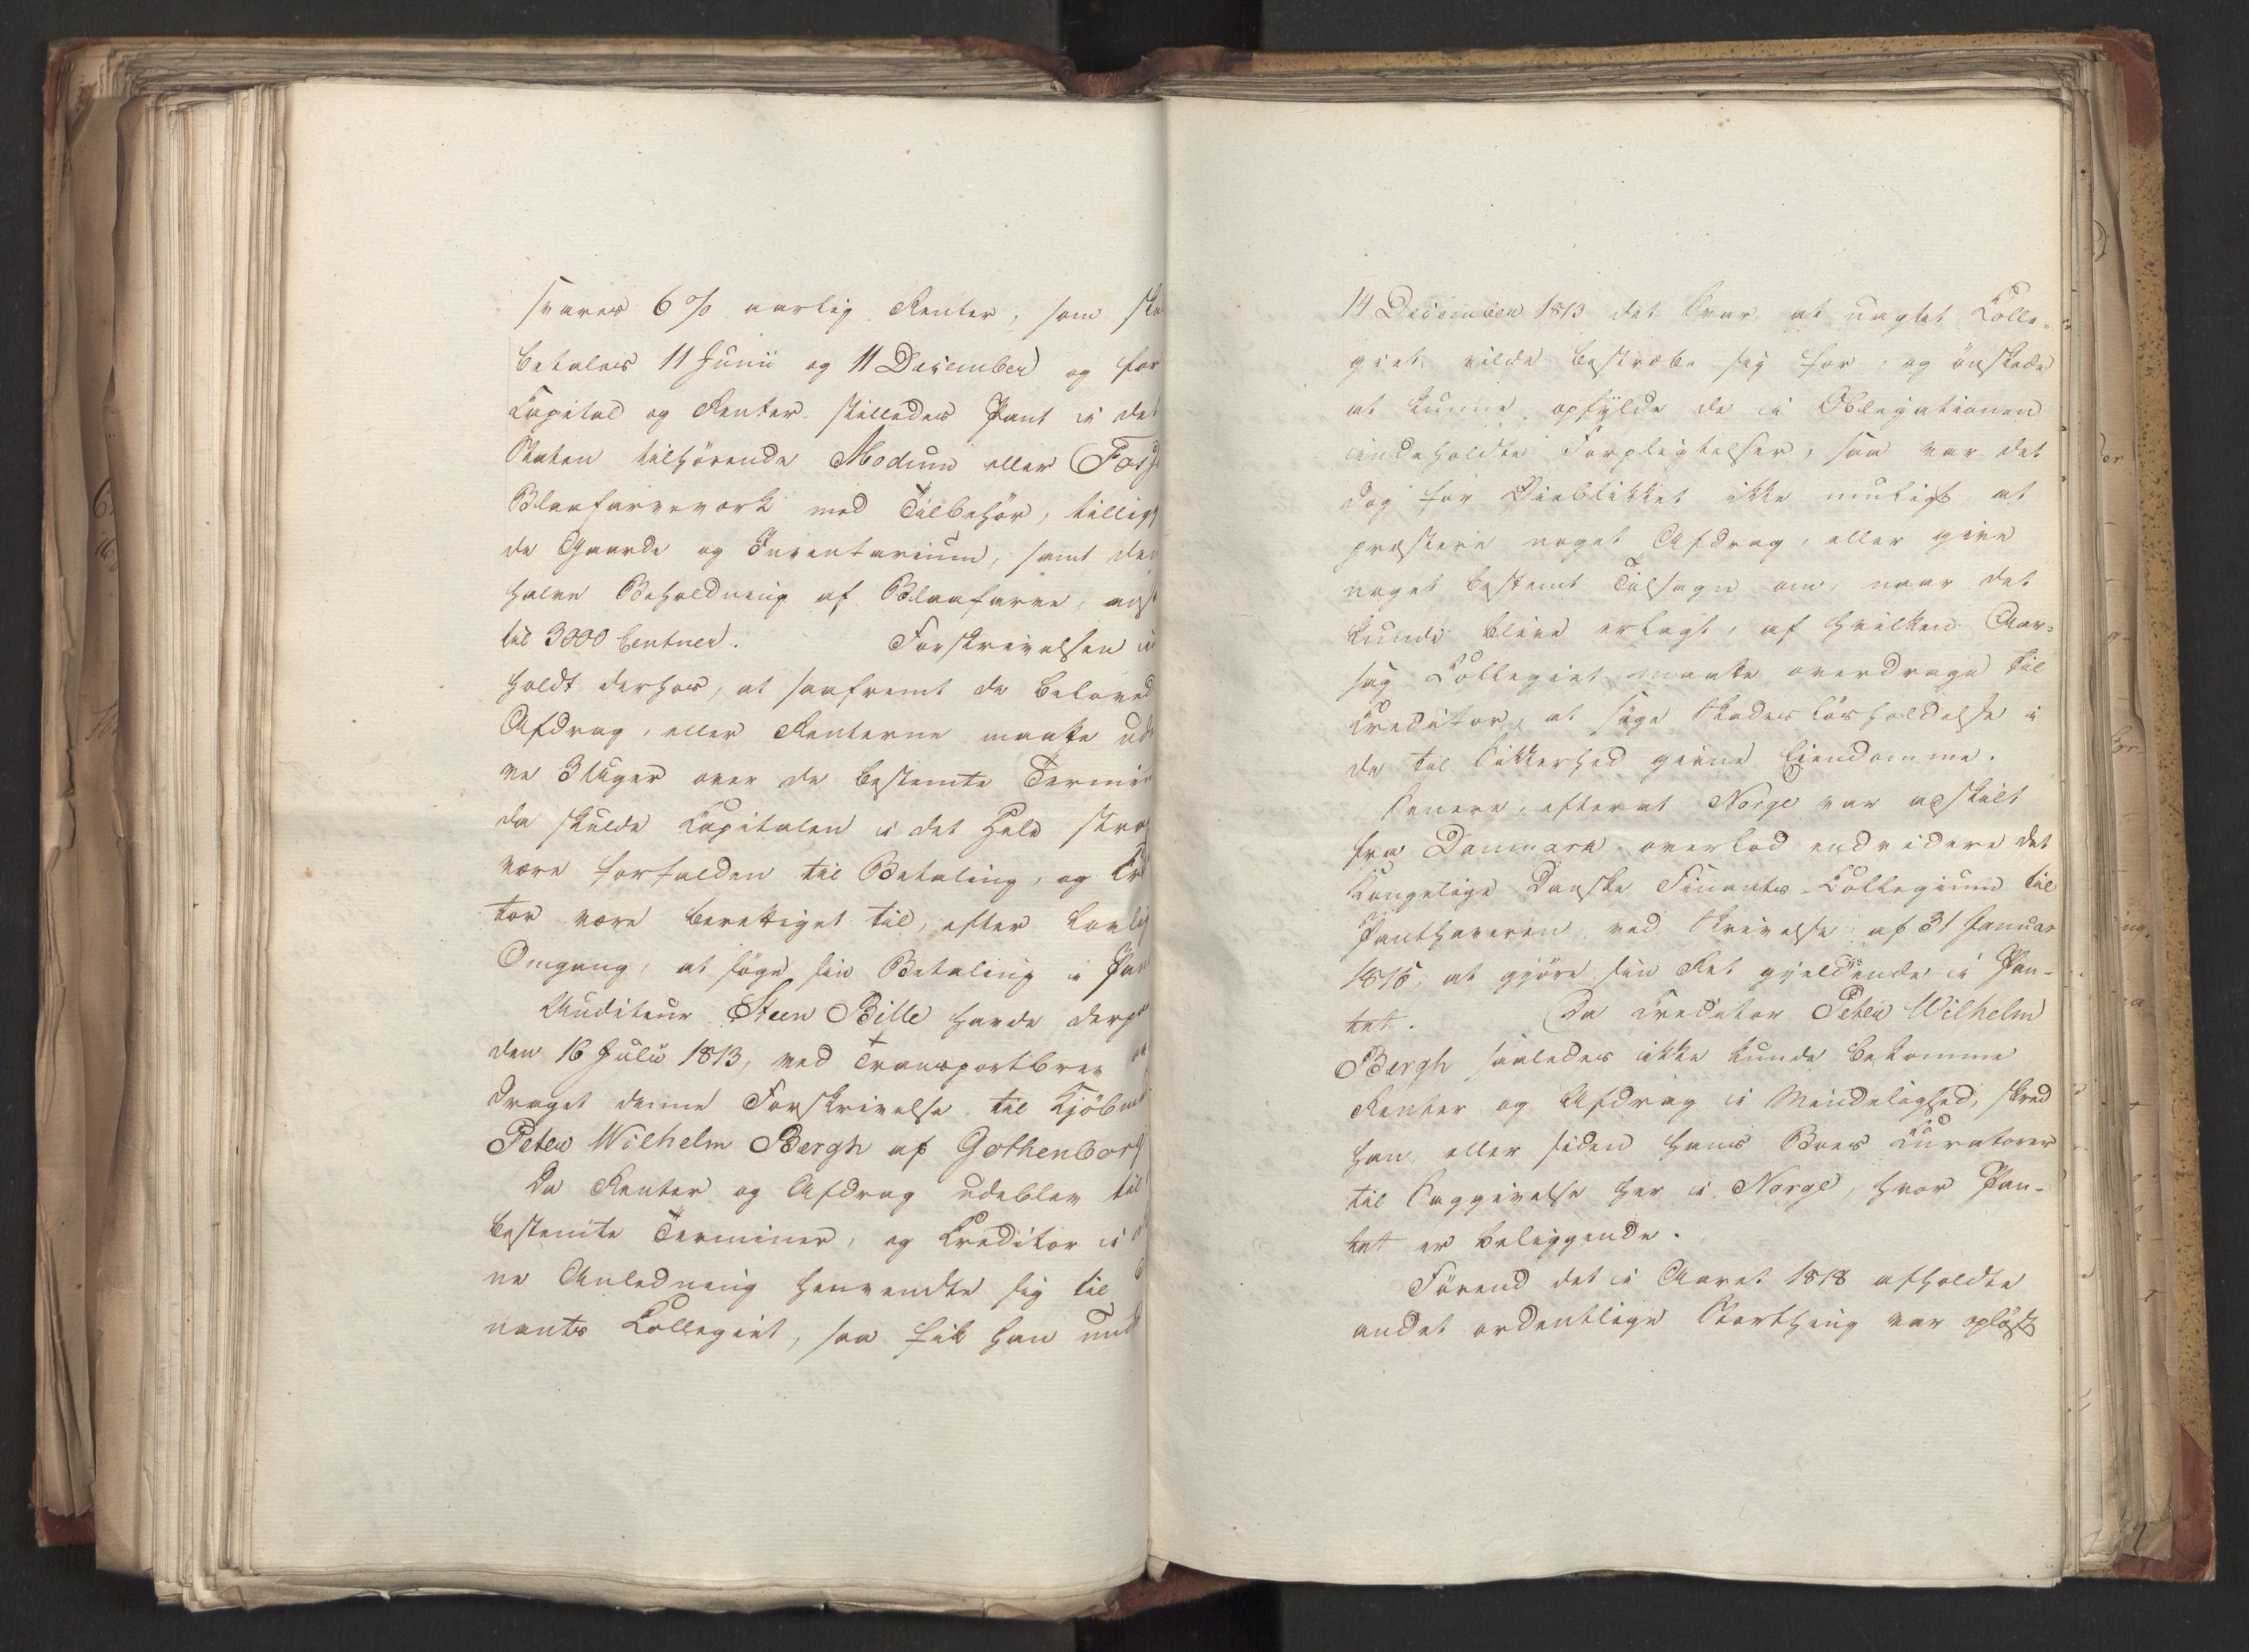 svares 6 % aarlig Renter, som ska
betales 11 Junii og 11 December og for
Capital og Renter stilledes Pant i det
Staten tilhörende Modum eller Foss
Blaafarveværk med Tilbehör, tillig
de Gaarde og Inventarium, samt den
halve Beholdning af Blaafarve, ansl
til 3000 Centner. Forskrivelsen in
holdt derhos, at saafremt de belovede
Afdrag, eller Renterne maatte ude
ve 3 Uger over de bestemte Termin
da skulde Capitalen i det Hele strax
være forfalden til Betaling, og Cre
tor være berettiget til, efter Lovlig
Omgang, at söge sin Betaling i Pan
Auditeur Steen Bille havde derpaa
den 16 Julii 1813, ved Transportbrev
draget denne Forskrivelse til Kjöbm
Peter Wilhelm Bergh af Gothenborg
Da Renter og Afdrag udeblev til
bestemte Terminer, og Creditor i
ne Anledning henvendte sig til
nants Collegiet, saa fik han und
14 December 1813 det Svar, at uagtet Colle-
giet vilde bestræbe sig for og önskede
at kunne opfylde de i Obligationen
indeholdte Forpligtelser, saa var det
dog for Öieblikket ikke muligt at
præstere noget Afdrag, eller give
noget bestemt Tilsagn om, naar det
kunde blive erlagt, af hvilken Aar-
sag Collegiet maatte overdrage til
Creditor, at söge Skadeslösholdelse i
de til Sikkerhed givne Eiendomme.
Senere, efterat Norge var adskilt
fra Danmark overlod endvidere det
Kongelige Danske Finants-Collegium til
Panthaveren ved Skrivelse af 31 Januar
1815, at gjöre sin Ret gjeldende i Pan-
tet. Da Creditor Peter Wilhelm
Bergh saaledes ikke kunde bekomme
Renter og Afdrag i Mindelighed, skred
han, eller siden hans Boes Curatorer
til Saggivelse her i Norge, hvor Pan-
tet er beliggende.
Förend det i Aaret 1818 afholdte
andet ordentlige Storthing var oplöst